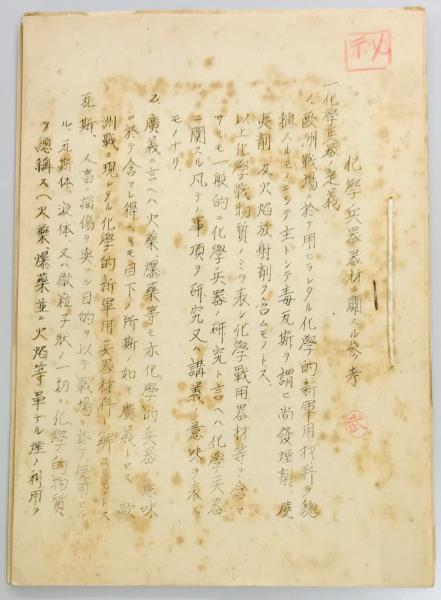 秘
化學兵器器材ニ關スル參考
一、化學兵器ノ定義
1、歐洲戰場ニ於テ用ヒラレタル化學的新軍用材料ヲ總
稱スルモノニシテ主トシテ毒瓦斯ヲ謂ヒ尚發煙劑、燒
夷劑及火焰放射劑ヲ含ムモノトス、
以上化學戰物質ノミヲ表シ化學戰用器材等ヲ含マ
サルモ一般的ニ化學兵器ノ研究ト言ヘハ化學兵器
ニ關スル凡テノ事項ヲ研究又ハ講義ノ意味ヲ表ス
モノナリ、
2、廣義ニ言ヘハ火藥爆藥等モ亦化學的兵器ノ意味
ニ於テ含マレ得ヘキモ目下ノ所斯ノ如キ廣義トセス歐
洲戰ニ現レタル化學的新軍用兵器材料ト解スルモノトス
瓦斯、人畜ニ損傷ヲ與フル目的ヲ以テ戰場ニ於テ使用セラ
ル、瓦斯体、液体又ハ微粒子狀ノ一切ノ化學的物質、
ヲ總稱ス（火藥爆藥並ニ火焰等單ナル煙ノ利用ヲ
武